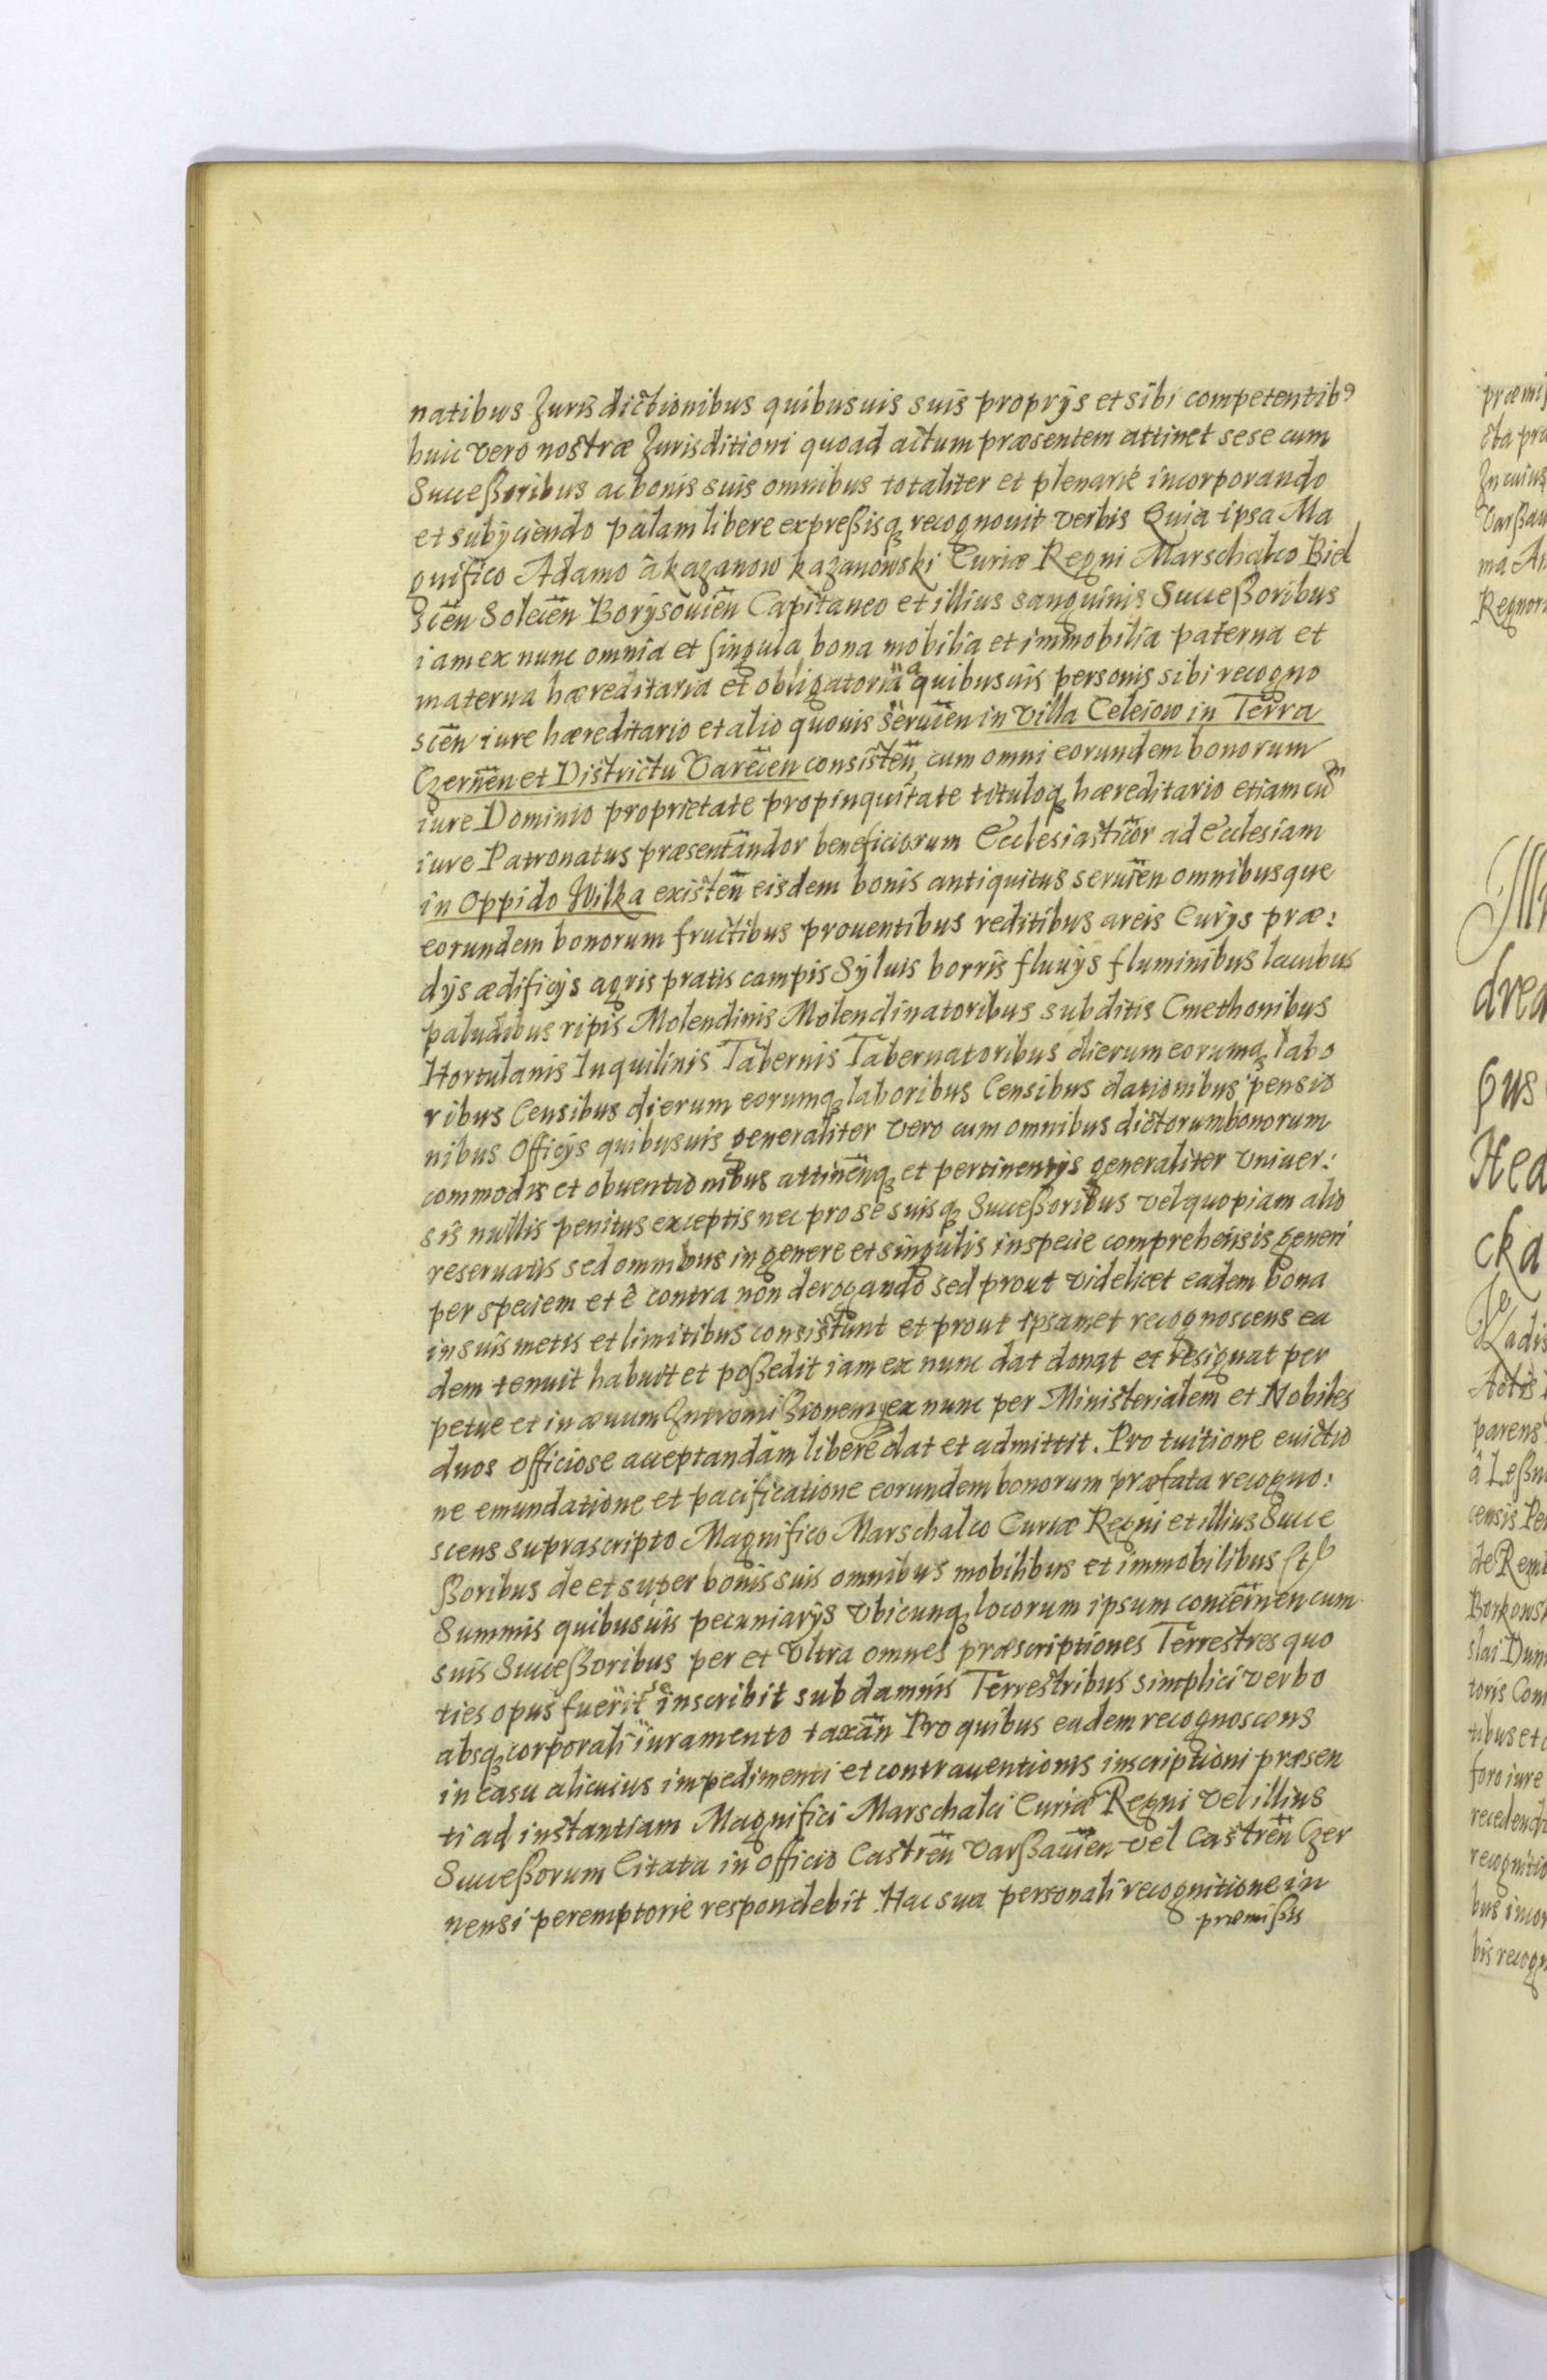 natibus Jurisdictionibus quibusuis suis proprijs et sibi competentibꝰ
huic vero nostræ Jurisditioni quoad actum præsentem attinet sese cum
Succeßoribus ac bonis suis omnibus totaliter et plenarie incorporando
et subijciendo palam libere expreßisq̃ recognouit verbis Quia ipsa Ma
gnifico Adamo â kazanow kazanowski Curiæ Regni Marschalco Biel
scien̄ Solecien̄ Borysouien̄ Capitaneo et illius sanguinis Succeßoribus
iam ex nunc omnia et singula bona mobilia et immobilia paterna et
materna hæreditaria et obligatoria a quibusuis personis sibi recogno
scien̄ iure hæreditario et alio quouis seruien̄ in villa Celejow in Terra
Czernen̄ et Districtu Varecien̄ consisten̄ cum omni eorundem bonorum
iure Dominio proprietate propinquitate tituloq̃ hæreditario etiam cum
iure Patronatus præsentandor beneficiorum Ecclesiasticor ad Ecclesiam
in Oppido Wilka existen̄ eisdem bonis antiquitus seruien̄ omnibusque
eorundem bonorum fructibus prouentibus reditibus areis Curijs præ:
dijs ædificijs agris pratis campis Syluis borris fluuijs fluminibus lacubus
paludibus ripis Molendinis Molendinatoribus subditis Cmethonibus
Hortulanis Inquilinis Tabernis Tabernatoribus dierum eorumq̃ labo
ribus Censibus dierum eorumq̃ laboribus Censibus dationibus pensio
nibus Officijs quibusuis generaliter vero cum omnibus dictorum bonorum
commodis et obuentionibus attinen̄q̃ et pertinentijs generaliter vniuer:
sis nullis penitus exceptis nec pro se suisq̃ Succeßoribus vel quopiam alio
reseruatis sed omnibus in genere et singulis in specie comprehensis generi
per speciem et ê contra non derogando sed prout videlicet eadem bona
in suis metis et limitibus consistunt et prout ipsamet recognoscens ea
dem tenuit habuit et poßedit iam ex nunc dat donat et resignat per
petue et in æuum Intromißionemq̃ ex nunc per Ministerialem et Nobiles
duos officiose acceptandam libere dat et admittit. Pro tuitione euictio
ne emundatione et pacificatione eorundem bonorum præfata recogno:
scens suprascripto Magnifico Marschalco Curiæ Regni et illius Succe
ßoribus de et super bonis suis omnibus mobilibus et immobilibus
Summis quibusuis pecuniarijs vbicunq̃ locorum ipsum concernen̄ cum
suis Succeßoribus per et vltra omnes præscriptiones Terrestres quo
ties opus fuerit se inscribit sub damnis Terrestribus simplici verbo
absq̃ corporali iuramento taxan̄ Pro quibus eadem recognoscens
in casu alicuius impedimenti et contrauentionis inscriptioni præsen
ti ad instantiam Magnifici Marschalci Curiæ Regni vel illius
Succeßorum Citata in officio Castren̄ Varßauien̄ vel Castren̄ Czer
nensi peremptorie respondebit. Hac sua personali recognitione in
præmißis